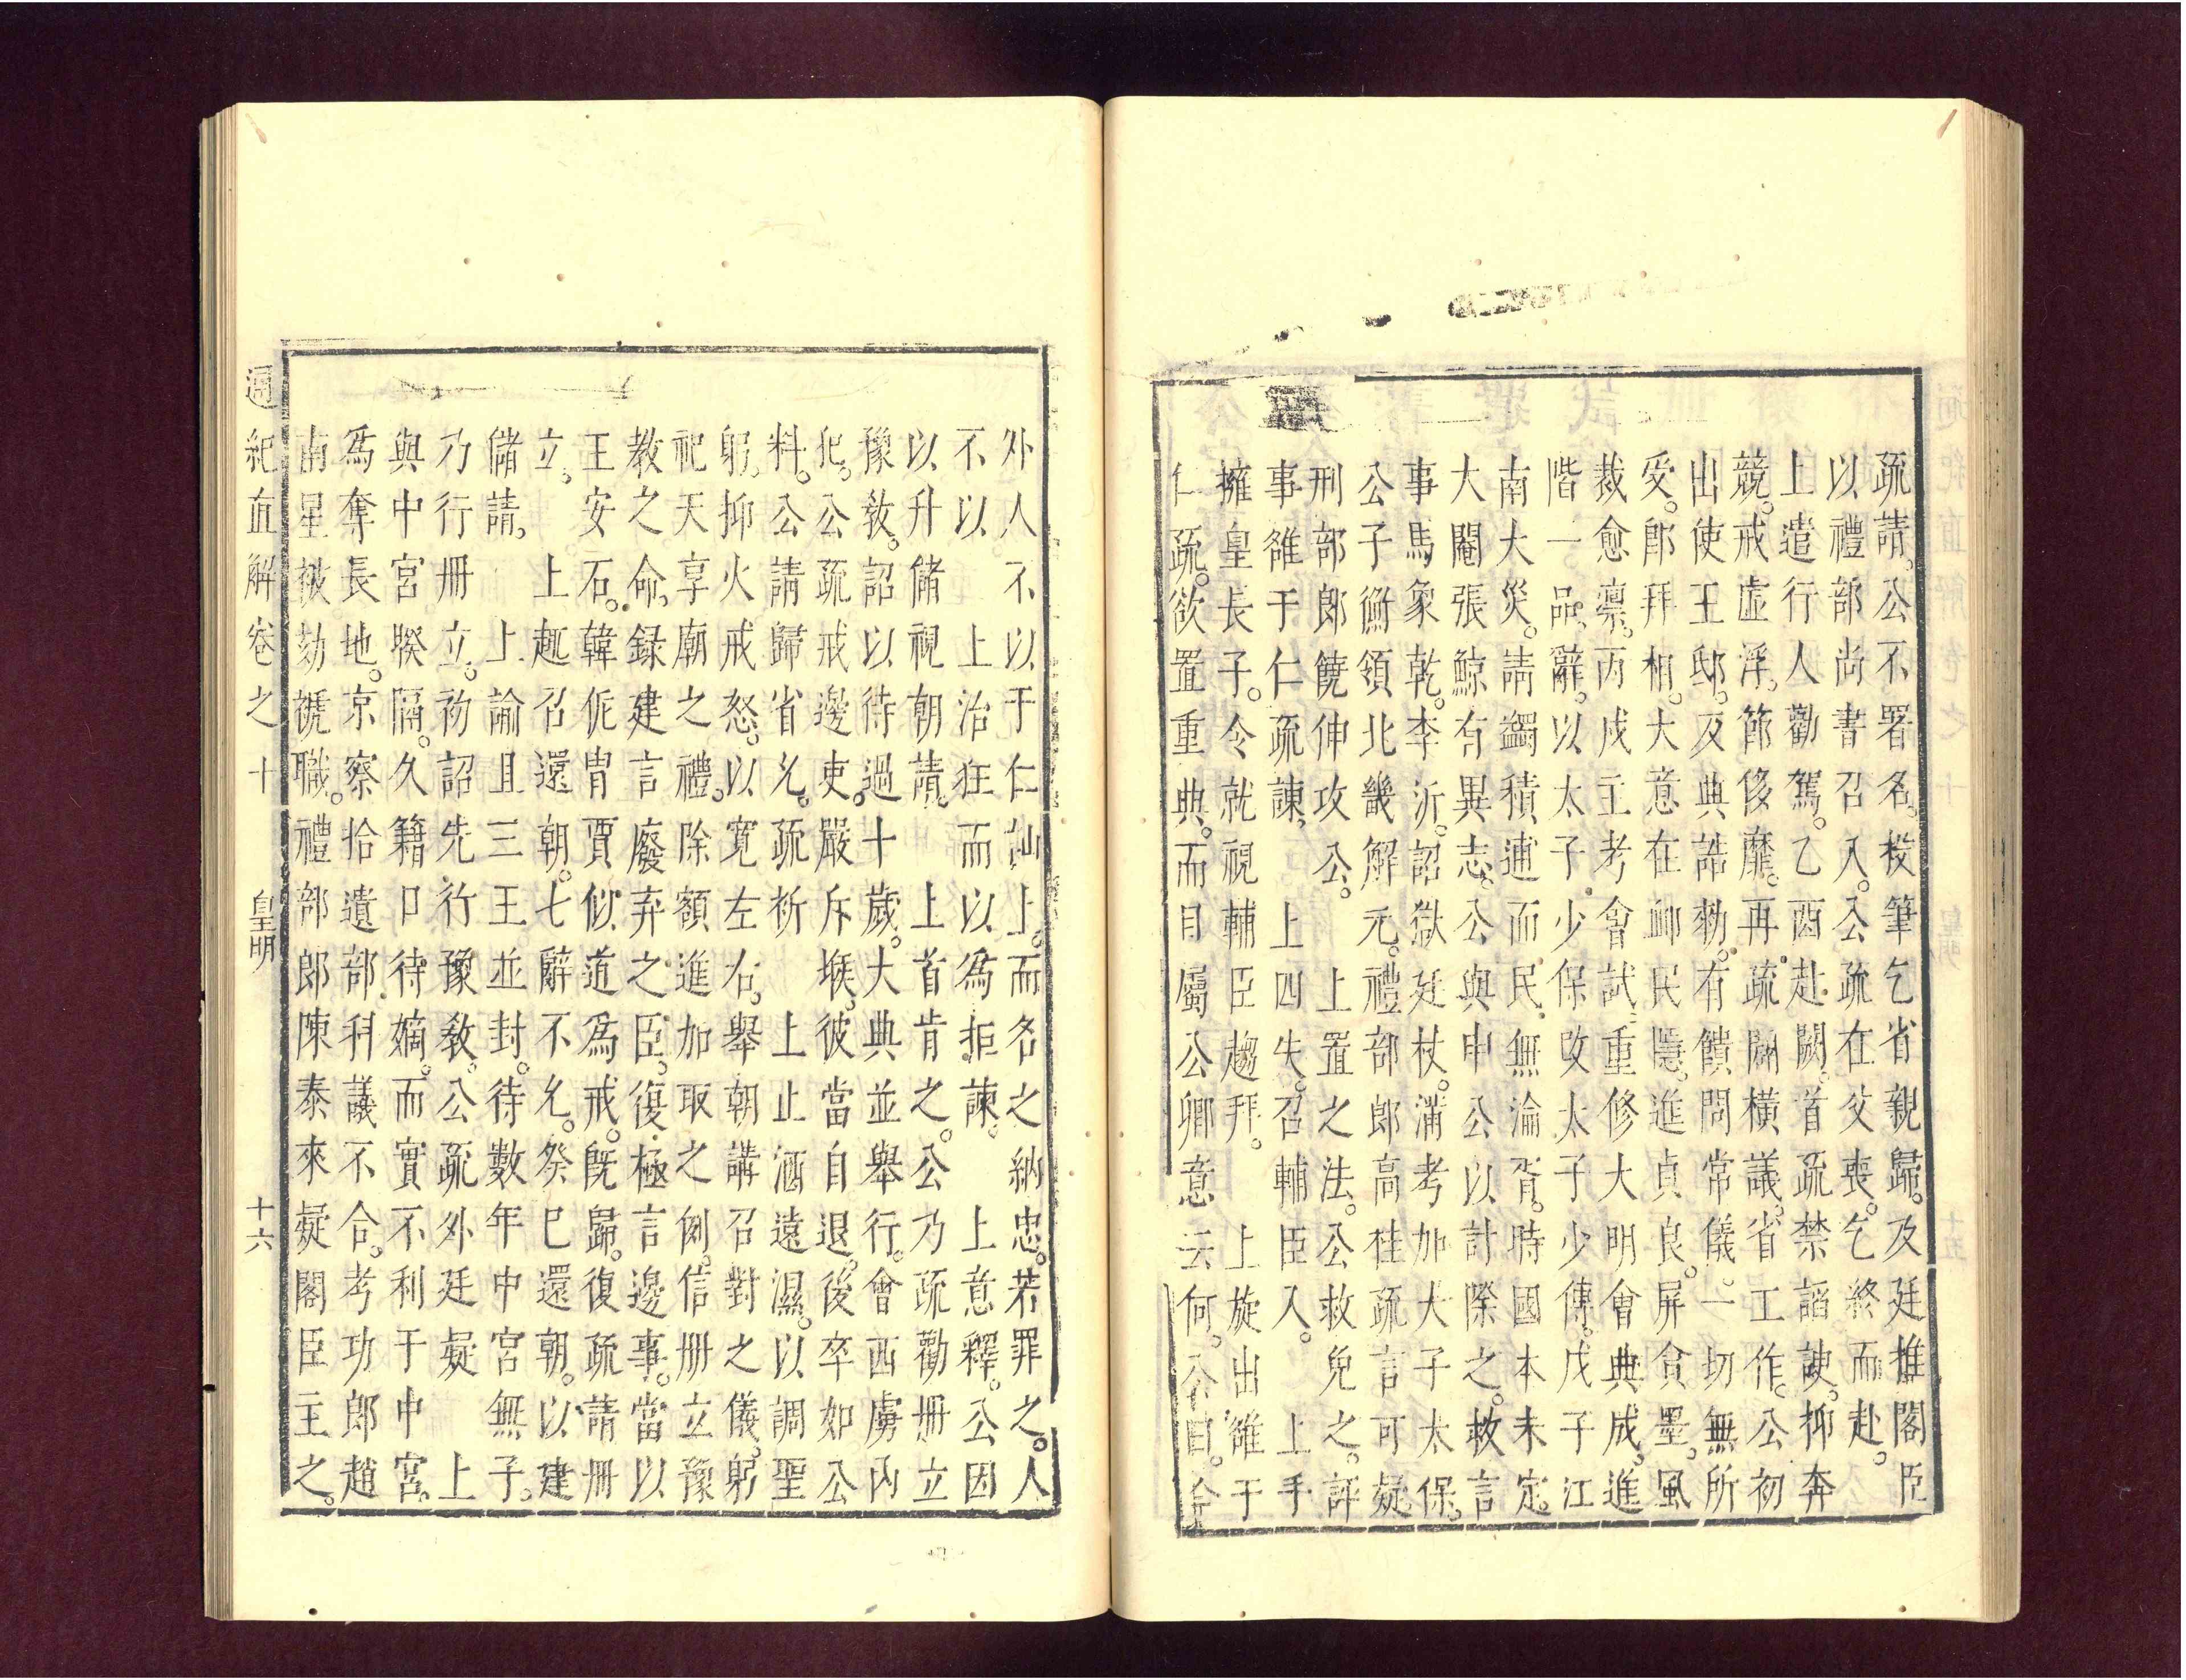 疏請。公不署名。投筆乞省親歸。及廷推閣臣
以禮部尚書召入。公疏在父喪。乞終而赴。
上遣行人勸駕。乙酉赴闕。首疏禁謟諛。抑奔
競。戒虛浮。節侈靡。再疏闢橫議。省工作。公初
出使王邸。及典誥勑。有饋問常儀一切無所
受。郎拜相。大意在卹民隱。進貞良。屏貪墨。風
裁愈凛。丙戌主考會試。重修大明會典成。進
階一品。辭。以太子少保改太子少傳。戊子江
南大災。請蠲積逋而民無淪胥。時國本未定。
大閹張鯨有異志。公與申公以計除之。救言
事馬象乾。李沂。詔獄廷杖。滿考加太子太保。
公子衡領北畿解元。禮部郎高桂疏言可疑。
刑部郎饒伸攻公。上置之法。公救免之。評
事雒于仁疏諫。上四失。召輔臣入。上手
擁皇長子。令就視輔臣趨拜。上旋出雒于
仁疏。欲置重典。而目屬公卿意云何。公自。
外人不以于仁訕上。而名之納忠。若罪之。人
不以上治狂而以為拒諫。上意釋。公因
以升儲視朝請。上首肯之。公乃疏勸冊立
豫教。詔以待過十歲。大典並舉行。會西虜內
犯。公疏戒邊吏。嚴斥堠。彼當自退。後卒如公
料。公請歸省允。疏祈上止酒遠濕。以調聖
躬。抑火戒怒。以寬左右。舉朝講召對之儀。躬
祀天享廟之禮。除額進加取之例。信冊立豫
教之命。錄建言廢弃之臣。復極言邊事。當以
王安石。韓侂冑賈似道為戒。既歸。復疏請冊
立。上趣召還朝。七辭不允。癸巳還朝。以建
儲請。上諭且三王並封。待數年中宮無子。
乃行冊立。初詔先行豫教。公疏外廷疑上
與中宮睽隔。久籍口待嫡。而實不利于中宮。
爲奪長地。京察拾遺部科議不合。考功郎趙
南星被劾褫職。禮部郎陳泰來疑閣臣主之。
通紀直解卷之十 皇明 十六